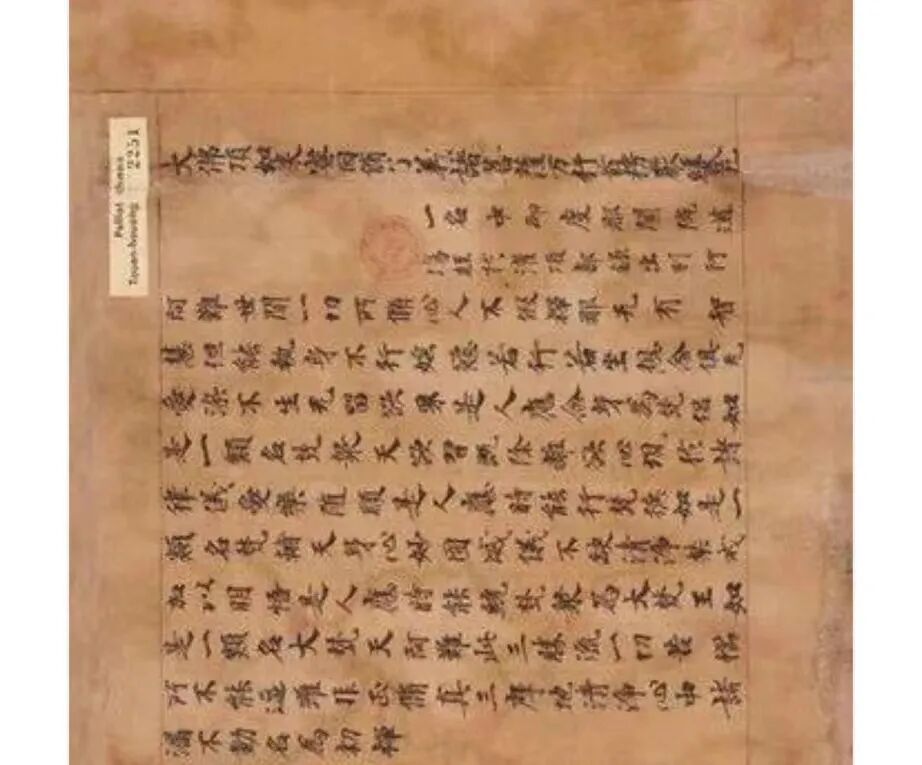 Pelliot chinois
Touen-houang 2251
大佛頂如來密因脩證了義諸菩薩万行首楞嚴經卷九
一名中印度那闌陁道
場經於灌頂部錄出別行
阿難世間一切所脩心人不假禪那无有智
慧但能執身不行婬慾若行若坐想念俱无
愛染不生无留欲界是人應念身為梵侶如
是一類名梵衆天欲習既除離欲心現於諸
律儀愛樂隨順是人應時能行梵德如是一
類名梵輔天身心妙圓威儀不缺清淨禁戒
加以明悟是人應時能統梵衆為大梵王如
是一類名大梵天阿難此三勝流一切苦惱
所不能逼雖非正脩真三摩地清淨心中諸
漏不動名為初禪